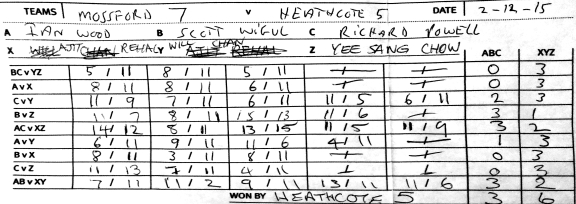 TEAMS MOSSFORD 7 V HEATHCOTE 5 DATE 2-12-15
A IAN WOOD B SCOTT WIGUL C RICHARD POWELL
X AJIT REHAL Y WILL CHAN Z YEE SANG CHOW ABC XYZ
BCvYZ 5 / 11 8 / 11 5 / 11 / / 0 3
AvX 8 / 11 8 / 11 6 / 11 / / 0 3
CvY 11 / 9 7 / 11 6 / 11 11 / 5 6 / 11 2 3
BvZ 11 / 7 8 / 11 15 / 13 11 / 6 / 3 1
ACvXZ 14 / 12 8 / 11 13 / 15 11 / 5 11 / 9 3 2
AvY 6 / 11 9 / 11 11 / 6 4 / 11 / 1 3
BvX 8 / 11 3 / 11 8 / 11 / / 0 3
CvZ 11 / 13 7 / 11 4 / 11 / / 0 3
ABvXY 7 / 11 11 / 2 9 / 11 13 / 11 11 / 6 3 2
WON BY HEATHCOTE 5 3 6